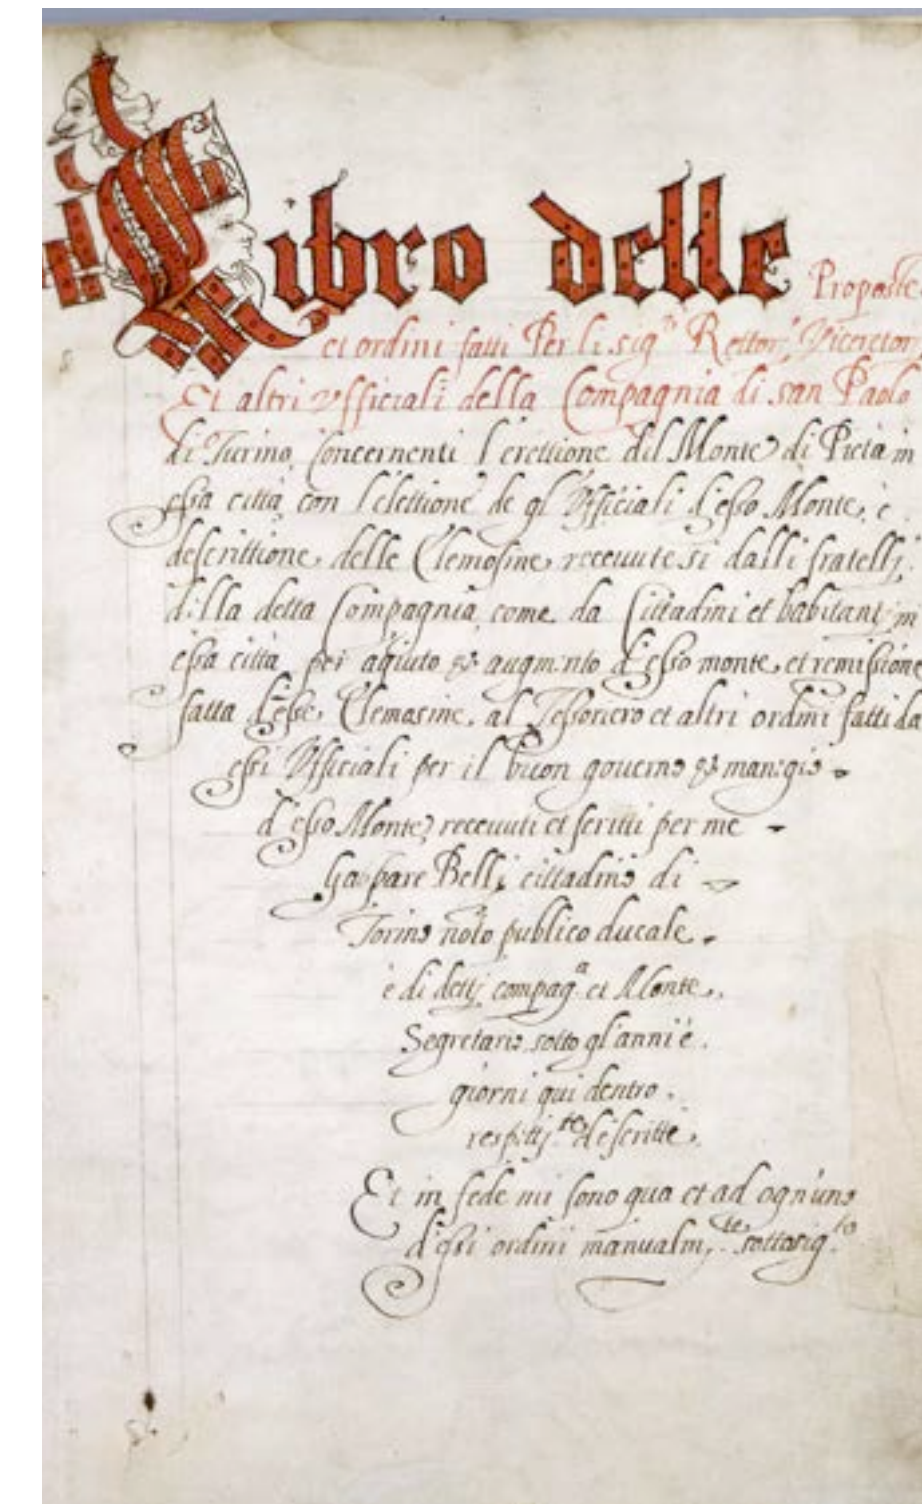 Libro delle Proposte
et ordini fatti Per li sig.ri Rettori, Vicerettori
Et altri Ufficiali della Compagnia di san Paolo
di Turino, Concernenti l'erettione dil Monte di Pietà in
essa città, con l'elettione de gl'Ufficiali d'esso Monte, è
descrittione delle Elemosine receuute si dalli fratelli
dilla detta Compagnia, come da Cittadini et habitanti in
essa città, per agiuto & augmento d'esso monte, et remissione
fatta d'esse Elemosine, al Tessoriero et altri ordini fatti da
essi Ufficiali per il buon governo & manegio
d'esso Monte, receuuti et scritti per me
Gaspare Belli cittadino di
Torino noto publico ducale
è di dette compag.a et Monte,
Segretario sotto gl'anni è
giorni qui dentro
respettj.te descritte,
Et in fede mi sono qua et ad ogn'uno
d'essi ordini manualm.te sottosig.to